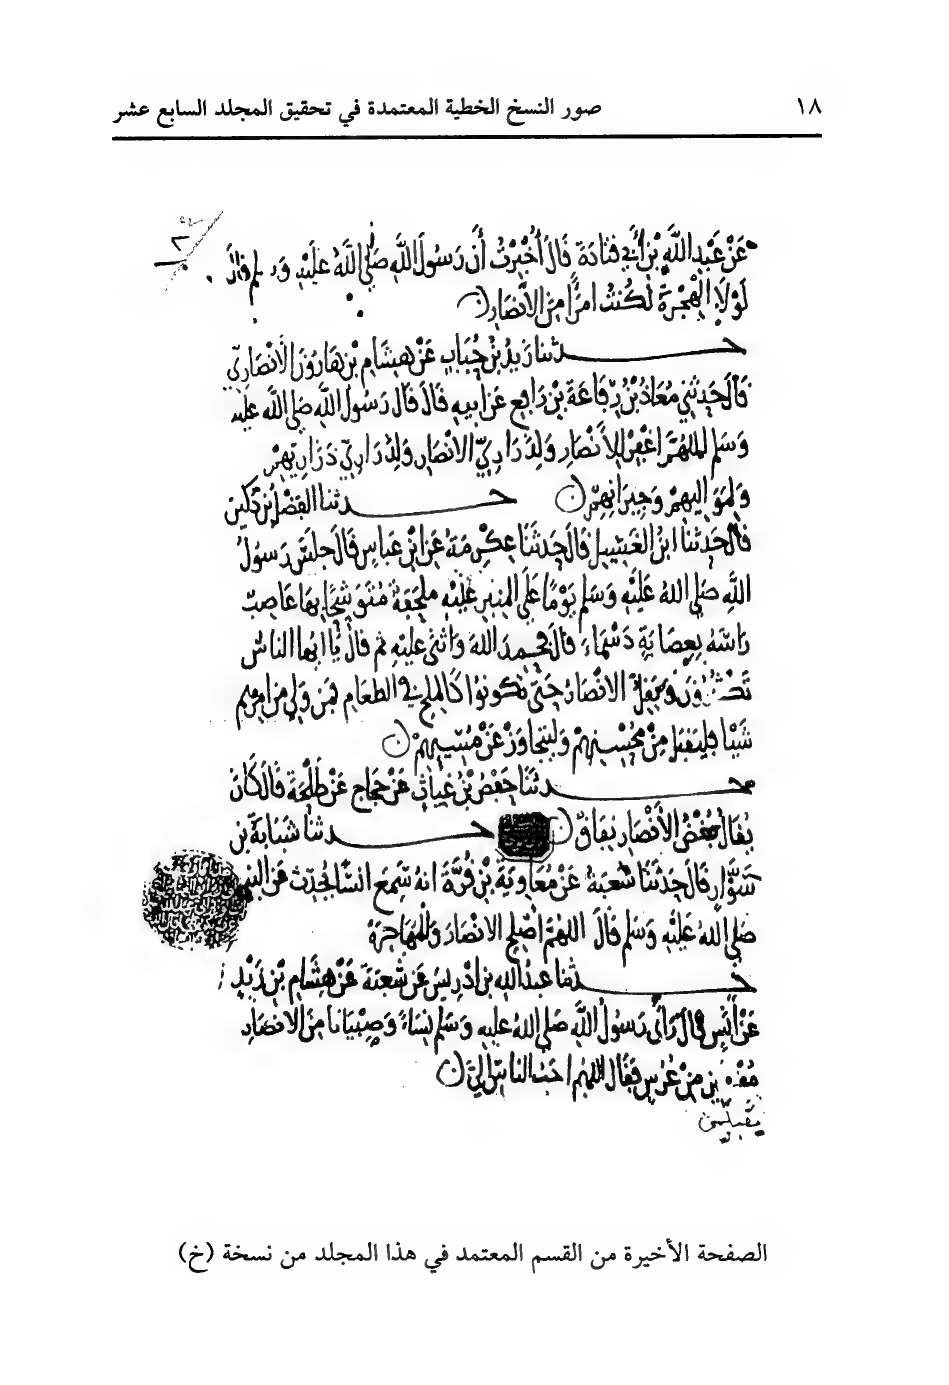 ١٨ صور النسخ الخطية المعتمدة في تحقيق المجلد السابع عشر
عَنْ عَبْدِ اللَّهِ بْنِ أَبِي قتادة قَالَ أُخْبِرْتُ أَنَّ رَسُولَ اللَّهِ صَلَّى اللَّهُ عَلَيْهِ وَسلم قال
لَوْلَا الْهِجْرَةُ لَكُنتُ امرًأ مِنَ الأَنْصَارِ
حـدثنا زيد بْنُ حُبَابٍ عَنْ هِشَامِ بْنِ هَارُونَ الأَنْصَارِيِّ
قَالَ حَدثني مُعَاذُ بْنُ رِفَاعَةَ بْنِ رَافِعٍ عَن أبيهِ قَالَ قَالَ رَسُولُ اللَّهِ صَلى اللَّه عليه
وَسَلم اللهُمَّ اغْفِرْ لِلأَنْصَارِ وَلِذَرَارِيِّ الأنصَارِ وَلِذَرَارِيِّ ذَرَارِيهِمْ
وَلِمَوَالِيهِمْ وَجِيرَانِهِمْ حـدثنا الفضل بْن دُكين
قَالَ حَدثنا ابنُ الغَسِيلِ قَالَ حَدثَنَا عِكْرِمَةُ عَن ابْنِ عَبَاسٍ قَالَ جلسَ رَسُولُ
اللَّهِ صَلى اللهُ عَلَيْهِ وَسَلم يَوْمًا عَلَى المنبرِ عَلَيْهِ ملحَفَةٌ مُتَوَشِّحًا بِهَا عَاصِبٌ
رَاسَهُ بِعِصَابَةٍ دَسْمَاءَ قَالَ فحَمِدَ اللهَ وَاثنى عليْهِ ثم قالَ يَا ايها الناسُ
تكثُرُونَ وَيَقِلُّ الانْصَارُ حَتَّى يَكونوا كَالملحِ فِي الطعَامِ فَمن وَلي مِن امرِهِم
شَيْئًا فليَقبَل مِنْ مُحْسِنِهِمْ وَليَتجَاوَزْ عَنْ مُسِيئِهِمْ
حـدثنَا حَفْصُ بْنُ غِيَاثٍ عَنْ حجَاجٍ عَنْ طَلْحَةَ قَالَ كَانَ
يُقالُ بُغْضُ الأَنْصَارِ نِفَاقٌ حـدثنَا شَبَابَةُ بن
سَوَّارٍ قَالَ حَدثَنَا شُعبَةُ عَنْ مُعَاوِيَةَ بْنِ قُرَّةَ انهُ سَمِعَ انسًا يُحَدِّث عَن النبي
صَلى اللهُ عَلَيْهِ وَسَلم قَالَ اللهُمَّ أصْلِحِ الانْصَارَ وَالْمُهَاجِرَةَ
حـدثنا عبدُ اللهِ بن ادْرِيسَ عَن شُعبَةَ عَنْ هِشَامِ بْنِ زَيْدٍ
عَنْ أَنَسٍ قَالَ رَأَى رَسُولُ اللَّهِ صَلى اللهُ عليهِ وَسَلم نِسَاءً وَصِبْيَانا مِنَ الانصَارِ
مُقبلين مِنْ عُرْسٍ فقَال اللهُم احَبُّ الناسِ إليَّ
مقبلين
الصفحة الأخيرة من القسم المعتمد في هذا المجلد من نسخة (خ)